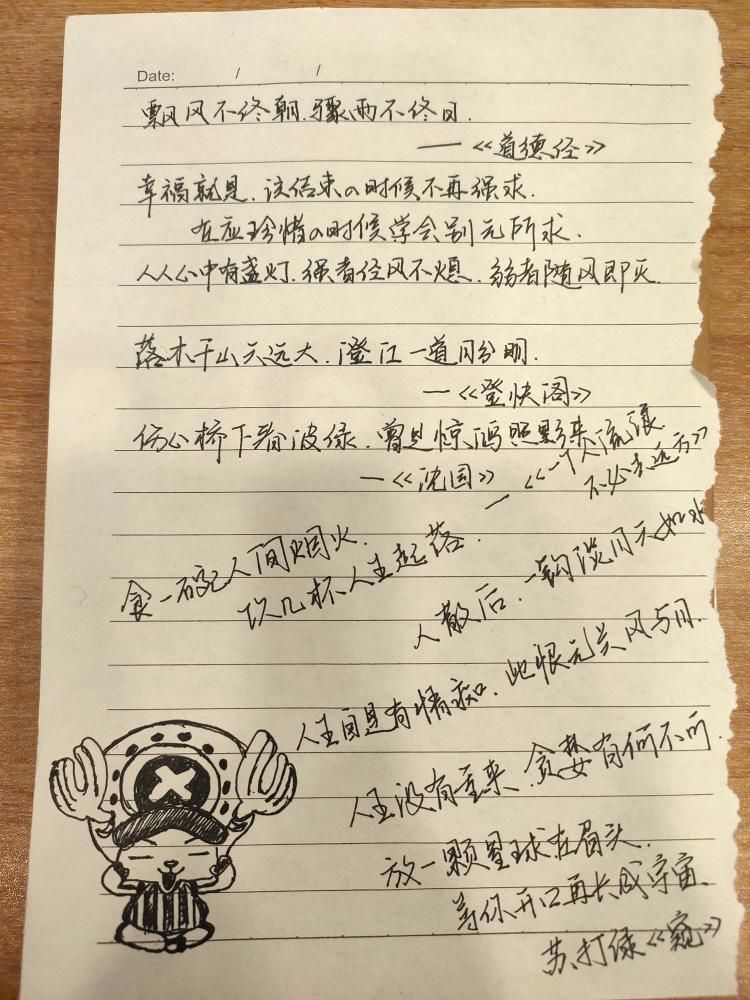 Date: / /
飘风不终朝.骤雨不终日.
—《道德经》
幸福就是.该结束の时候不再强求.
在应珍惜の时候学会别无所求.
人人心中有盏灯.强者经风不熄.弱者随风即灭.
落木千山天远大.澄江一道月分明.
—《登快阁》
伤心桥下春波绿.曾是惊鸿照影来.
—《沈园》
—《一个人流浪
不必去远方》
食一碗人间烟火.
饮几杯人生起落.
人散后.一钩淡月天如水
人生自是有情痴.此恨无关风与月.
人生没有重来.贪婪有何不可.
放一颗星球在眉头.
等你开口再长成宇宙.
苏打绿《窥》